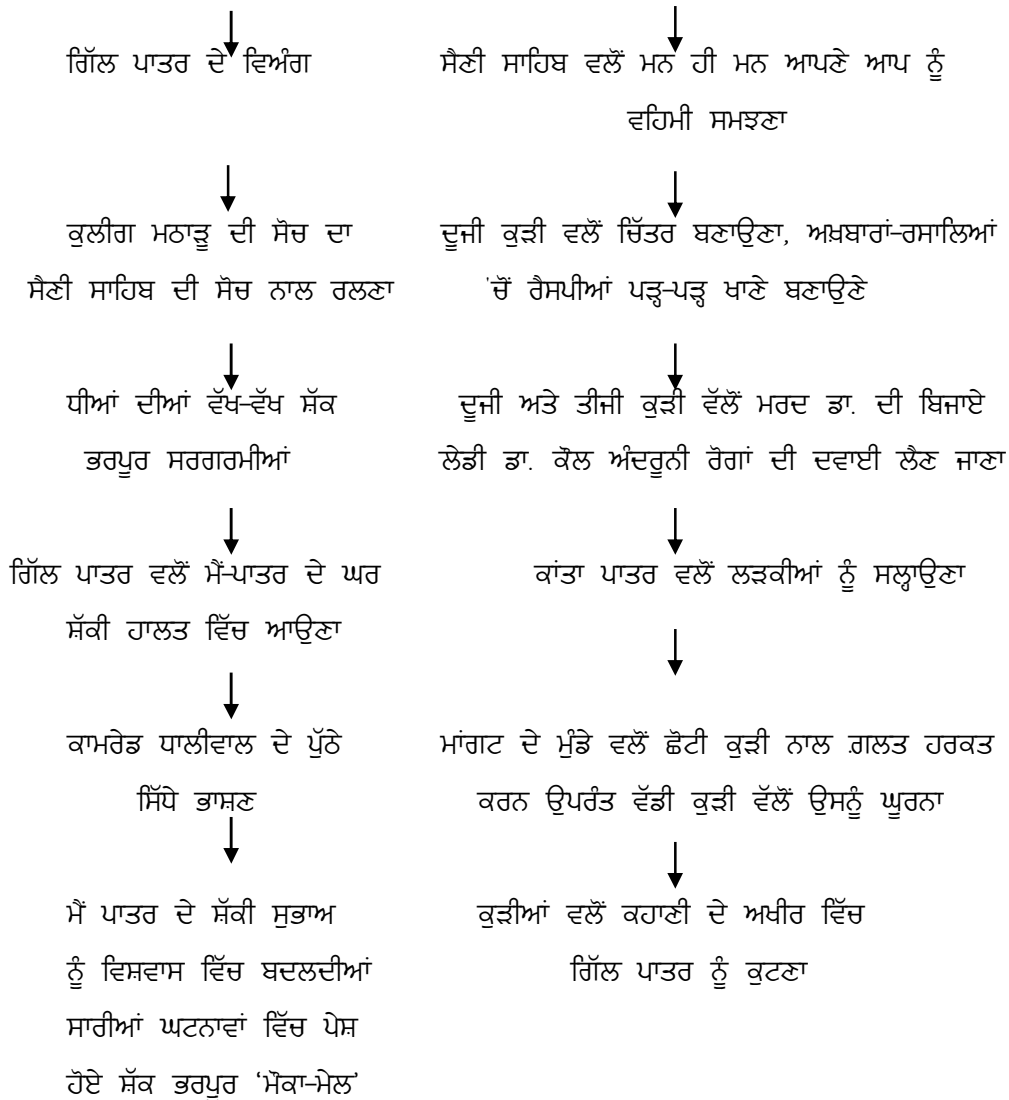 ਗਿੱਲ ਪਾਤਰ ਦੇ ਵਿਅੰਗ
ਕੁਲੀਗ ਮਠਾੜੂ ਦੀ ਸੋਚ ਦਾ
ਸੈਣੀ ਸਾਹਿਬ ਦੀ ਸੋਚ ਨਾਲ ਰਲਣਾ
ਧੀਆਂ ਦੀਆਂ ਵੱਖ-ਵੱਖ ਸ਼ੱਕ
ਭਰਪੂਰ ਸਰਗਰਮੀਆਂ
ਗਿੱਲ ਪਾਤਰ ਵਲੋਂ ਮੈਂ-ਪਾਤਰ ਦੇ ਘਰ
ਸ਼ੱਕੀ ਹਾਲਤ ਵਿੱਚ ਆਉਣਾ
ਕਾਮਰੇਡ ਧਾਲੀਵਾਲ ਦੇ ਪੁੱਠੇ
ਸਿੱਧੇ ਭਾਸ਼ਣ
ਮੈਂ ਪਾਤਰ ਦੇ ਸ਼ੱਕੀ ਸੁਭਾਅ
ਨੂੰ ਵਿਸ਼ਵਾਸ ਵਿੱਚ ਬਦਲਦੀਆਂ
ਸਾਰੀਆਂ ਘਟਨਾਵਾਂ ਵਿੱਚ ਪੇਸ਼
ਹੋਏ ਸ਼ੱਕ ਭਰਪੂਰ ‘ਮੌਕਾ-ਮੇਲ’
ਸੈਣੀ ਸਾਹਿਬ ਵਲੋਂ ਮਨ ਹੀ ਮਨ ਆਪਣੇ ਆਪ ਨੂੰ
ਵਹਿਮੀ ਸਮਝਣਾ
ਦੂਜੀ ਕੁੜੀ ਵਲੋਂ ਚਿੱਤਰ ਬਣਾਉਣਾ, ਅਖ਼ਬਾਰਾਂ-ਰਸਾਲਿਆਂ
'ਚੋਂ ਰੈਸਪੀਆਂ ਪੜ੍ਹ-ਪੜ੍ਹ ਖਾਣੇ ਬਣਾਉਣੇ
ਦੂਜੀ ਅਤੇ ਤੀਜੀ ਕੁੜੀ ਵੱਲੋਂ ਮਰਦ ਡਾ. ਦੀ ਬਿਜਾਏ
ਲੇਡੀ ਡਾ. ਕੋਲ ਅੰਦਰੂਨੀ ਰੋਗਾਂ ਦੀ ਦਵਾਈ ਲੈਣ ਜਾਣਾ
ਕਾਂਤਾ ਪਾਤਰ ਵਲੋਂ ਲੜਕੀਆਂ ਨੂੰ ਸਲ੍ਹਾਉਣਾ
ਮਾਂਗਟ ਦੇ ਮੁੰਡੇ ਵਲੋਂ ਛੋਟੀ ਕੁੜੀ ਨਾਲ ਗ਼ਲਤ ਹਰਕਤ
ਕਰਨ ਉਪਰੰਤ ਵੱਡੀ ਕੁੜੀ ਵੱਲੋਂ ਉਸਨੂੰ ਘੂਰਨਾ
ਕੁੜੀਆਂ ਵਲੋਂ ਕਹਾਣੀ ਦੇ ਅਖੀਰ ਵਿੱਚ
ਗਿੱਲ ਪਾਤਰ ਨੂੰ ਕੁਟਣਾ